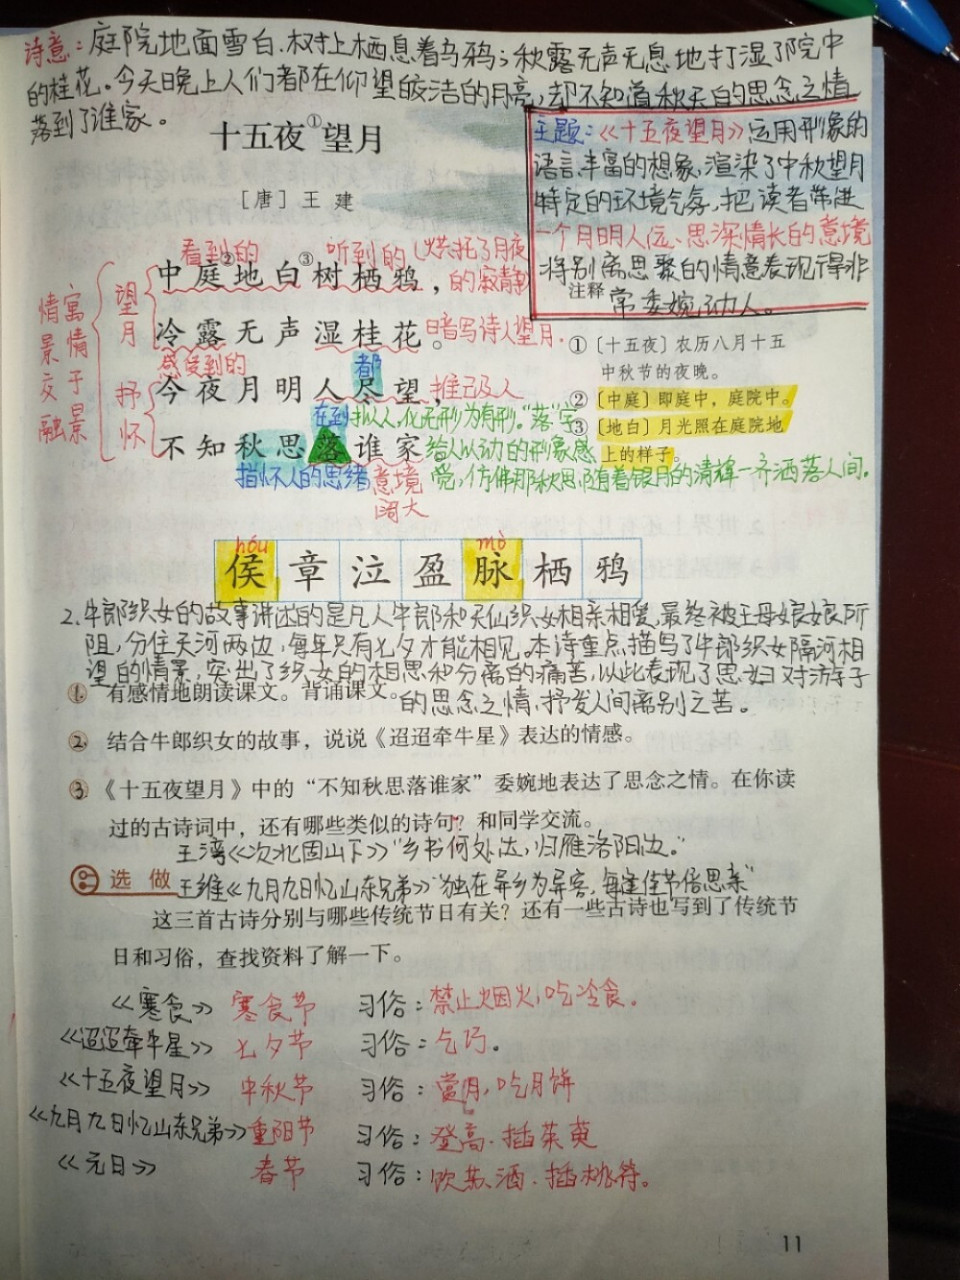 诗意：庭院地面雪白，树上栖息着乌鸦；秋露无声无息地打湿了院中
的桂花。今天晚上人们都在仰望皎洁的月亮，却不知道秋天的思念之情
落到了谁家。
十五夜①望月
[唐] 王 建
主题：《十五夜望月》运用形象的
语言、丰富的想象，渲染了中秋望月
特定的环境气氛，把读者带进
一个月明人远、思深情长的意境
将别离思聚的情意表现得非
常委婉动人。
看到的
听到的（烘托了月夜
的寂静）
中庭②地白③树栖鸦，
冷露无声湿桂花。
暗写诗人望月.
感受到的
都
今夜月明人尽望，
推己及人
在到
拟人,化无形为有形。"落"字
不知秋思落谁家
给人以动的形象感
觉,仿佛那秋思随着银月的清辉一齐洒落人间。
指怀人的思绪
意境
阔大
望月
抒怀
寓情于景
情景交融
注释
① 〔十五夜〕农历八月十五
中秋节的夜晚。
② 〔中庭〕即庭中，庭院中。
③ 〔地白〕月光照在庭院地
上的样子。
hóu
mò
侯 章 泣 盈 脉 栖 鸦
2.牛郎织女的故事讲述的是凡人牛郎和天仙织女相亲相爱,最终被王母娘娘所
阻，分住天河两边，每年只有七夕才能相见。本诗重点描写了牛郎织女隔河相
望的情景，突出了织女的相思和分离的痛苦，从此表现了思妇对游子
的思念之情，抒发人间离别之苦。
① 有感情地朗读课文。背诵课文。
② 结合牛郎织女的故事，说说《迢迢牵牛星》表达的情感。
③ 《十五夜望月》中的“不知秋思落谁家”委婉地表达了思念之情。在你读
过的古诗词中，还有哪些类似的诗句？和同学交流。
王湾《次北固山下》"乡书何处达，归雁洛阳边。"
选 做
王维《九月九日忆山东兄弟》"独在异乡为异客，每逢佳节倍思亲"
这三首古诗分别与哪些传统节日有关？还有一些古诗也写到了传统节
日和习俗，查找资料了解一下。
《寒食》 寒食节 习俗：禁止烟火，吃冷食.
《迢迢牵牛星》 七夕节 习俗：乞巧.
《十五夜望月》 中秋节 习俗：赏月，吃月饼
《九月九日忆山东兄弟》 重阳节 习俗：登高.插茱萸
《元日》 春节 习俗：饮苏酒.插桃符。
11